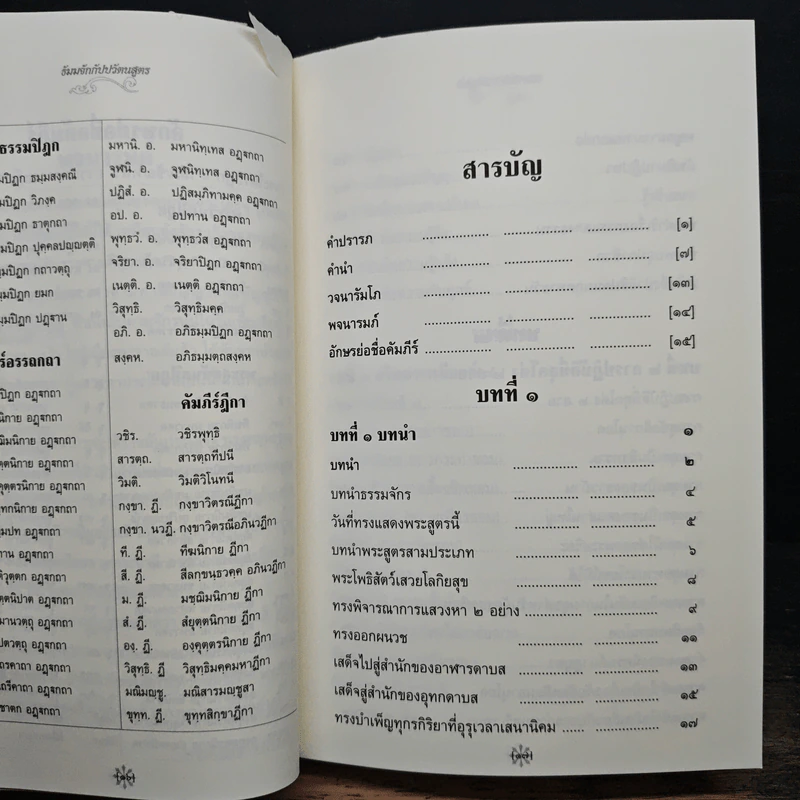 ธัมมจักกัปปวัตนสูตร
ธรรมปิฎก
มปิฎก ธมฺมสงฺคณี
มปิฎก วิภงฺค
มปิฎก ธาตุกถา
มปิฎก ปุคฺคลปญฺญตฺติ
มปิฎก กถาวตฺถุ
มฺมปิฎก ยมก
มฺมปิฎก ปฏฺฐาน
ร์อรรถกถา
ปิฎก อฏฺฐกถา
นิกาย อฏฺฐกถา
ฌิมนิกาย อฏฺฐกถา
ตฺตนิกาย อฏฺฐกถา
คุตฺตรนิกาย อฏฺฐกถา
ทกนิกาย อฏฺฐกถา
มปท อฏฺฐกถา
าน อฏฺฐกถา
ติวุตฺตก อฏฺฐกถา
ตฺตนิปาต อฏฺฐกถา
มานวตฺถุ อฏฺฐกถา
ปตวตฺถุ อฏฺฐกถา
ถรคาถา อฏฺฐกถา
ถรีคาถา อฏฺฐกถา
ชาตก อฏฺฐกถา
มหานิ. อ. มหานิทฺเทส อฏฺฐกถา
จูฬนิ. อ. จูฬนิทฺเทส อฏฺฐกถา
ปฏิสํ. อ. ปฏิสมฺภิทามคฺค อฏฺฐกถา
อป. อ. อปทาน อฏฺฐกถา
พุทฺธวํ. อ. พุทฺธวํส อฏฺฐกถา
จริยา. อ. จริยาปิฎก อฏฺฐกถา
เนตฺติ. อ. เนตฺติ อฏฺฐกถา
วิสุทฺธิ. วิสุทฺธิมคฺค
อภิ. อ. อภิธมฺมปิฎก อฏฺฐกถา
สงฺคห. อภิธมฺมตฺถสงฺคห
คัมภีร์ฎีกา
วชิร. วชิรพุทฺธิ
สารตฺถ. สารตฺถทีปนี
วิมติ. วิมติวิโนทนี
กงฺขา. ฏี. กงฺขาวิตรณีฏีกา
กงฺขา. นวฏี. กงฺขาวิตรณีอภินวฏีกา
ที. ฏี. ทีฆนิกาย ฏีกา
สี. ฏี. สีลกฺขนฺธวคฺค อภินวฏีกา
ม. ฏี. มชฺฌิมนิกาย ฏีกา
สํ. ฏี. สํยุตฺตนิกาย ฏีกา
องฺ. ฏี. องฺคุตฺตรนิกาย ฏีกา
วิสุทฺธิ. ฏี วิสุทฺธิมคฺคมหาฏีกา
มณิมญฺชู. มณิสารมญฺชูสา
ขุทฺท. ฏี. ขุทฺทสิกฺขาฏีกา
[๑๖]
สารบัญ
คำปรารภ ..................... ..................... ................... [๑]
คำนำ ..................... ..................... ................... [๗]
วจนารัมโภ ..................... ..................... ................... [๑๓]
พจนารมภ์ ..................... ..................... ................... [๑๔]
อักษรย่อชื่อคัมภีร์ ..................... ..................... ................... [๑๕]
บทที่ ๑
บทที่ ๑ บทนำ ๑
บทนำ ..................... ................... ๒
บทนำธรรมจักร ..................... ................... ๔
วันที่ทรงแสดงพระสูตรนี้ ..................... ................... ๕
บทนำพระสูตรสามประเภท ..................... ................... ๖
พระโพธิสัตว์เสวยโลกิยสุข ..................... ................... ๘
ทรงพิจารณาการแสวงหา ๒ อย่าง ..................... ................... ๙
ทรงออกผนวช ..................... ................... ๑๑
เสด็จไปสู่สำนักของอาฬารดาบส ..................... ................... ๑๓
เสด็จสู่สำนักของอุทกดาบส ..................... ................... ๑๕
ทรงบำเพ็ญทุกรกิริยาที่อุรุเวลาเสนานิคม ...... ................... ๑๗
[๑๗]